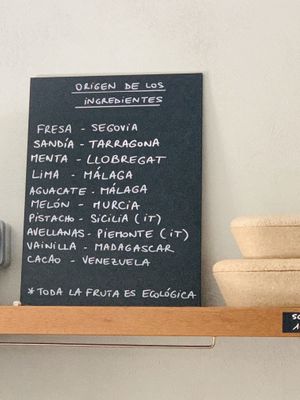 ORIGEN DE LOS
INGREDIENTES
FRESA - SEGOVIA
SANDÍA - TARRAGONA
MENTA - LLOBREGAT
LIMA - MÁLAGA
AGUACATE - MÁLAGA
MELÓN - MURCIA
PISTACHO - SICILIA (IT)
AVELLANAS - PIEMONTE (IT)
VAINILLA - MADAGASCAR
CACAO - VENEZUELA
* TODA LA FRUTA ES ECOLÓGICA